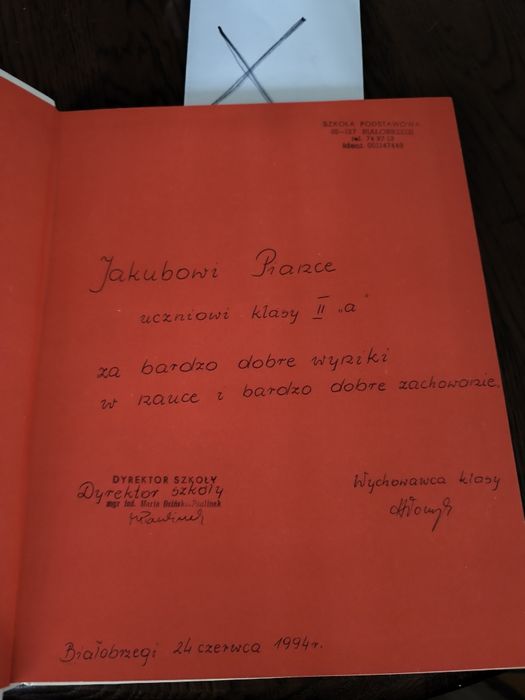 SZKOŁA PODSTAWOWA
tel. 74 97-13
Ident. 001147448
Jakubowi Piance
uczniowi klasy II „a"
za bardzo dobre wyniki
w nauce i bardzo dobre zachowanie.
DYREKTOR SZKOŁY
Dyrektor szkoły
mgr inż. Maria
Wychowawca klasy
Białobrzegi 24 czerwca 1994r.